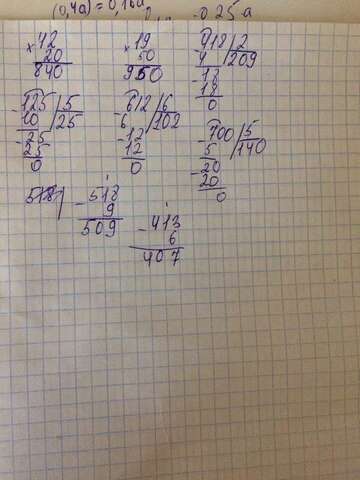 (0,4a) = 0,16a
0,25a
× 42
20
840
× 19
50
950
- 418 / 2
4 / 209
- 18
18
0
- 125 / 5
10 / 25
- 25
25
0
- 612 / 6
6 / 102
- 12
12
0
- 700 / 5
5 / 140
- 20
20
0
- 518
9
509
- 413
6
407